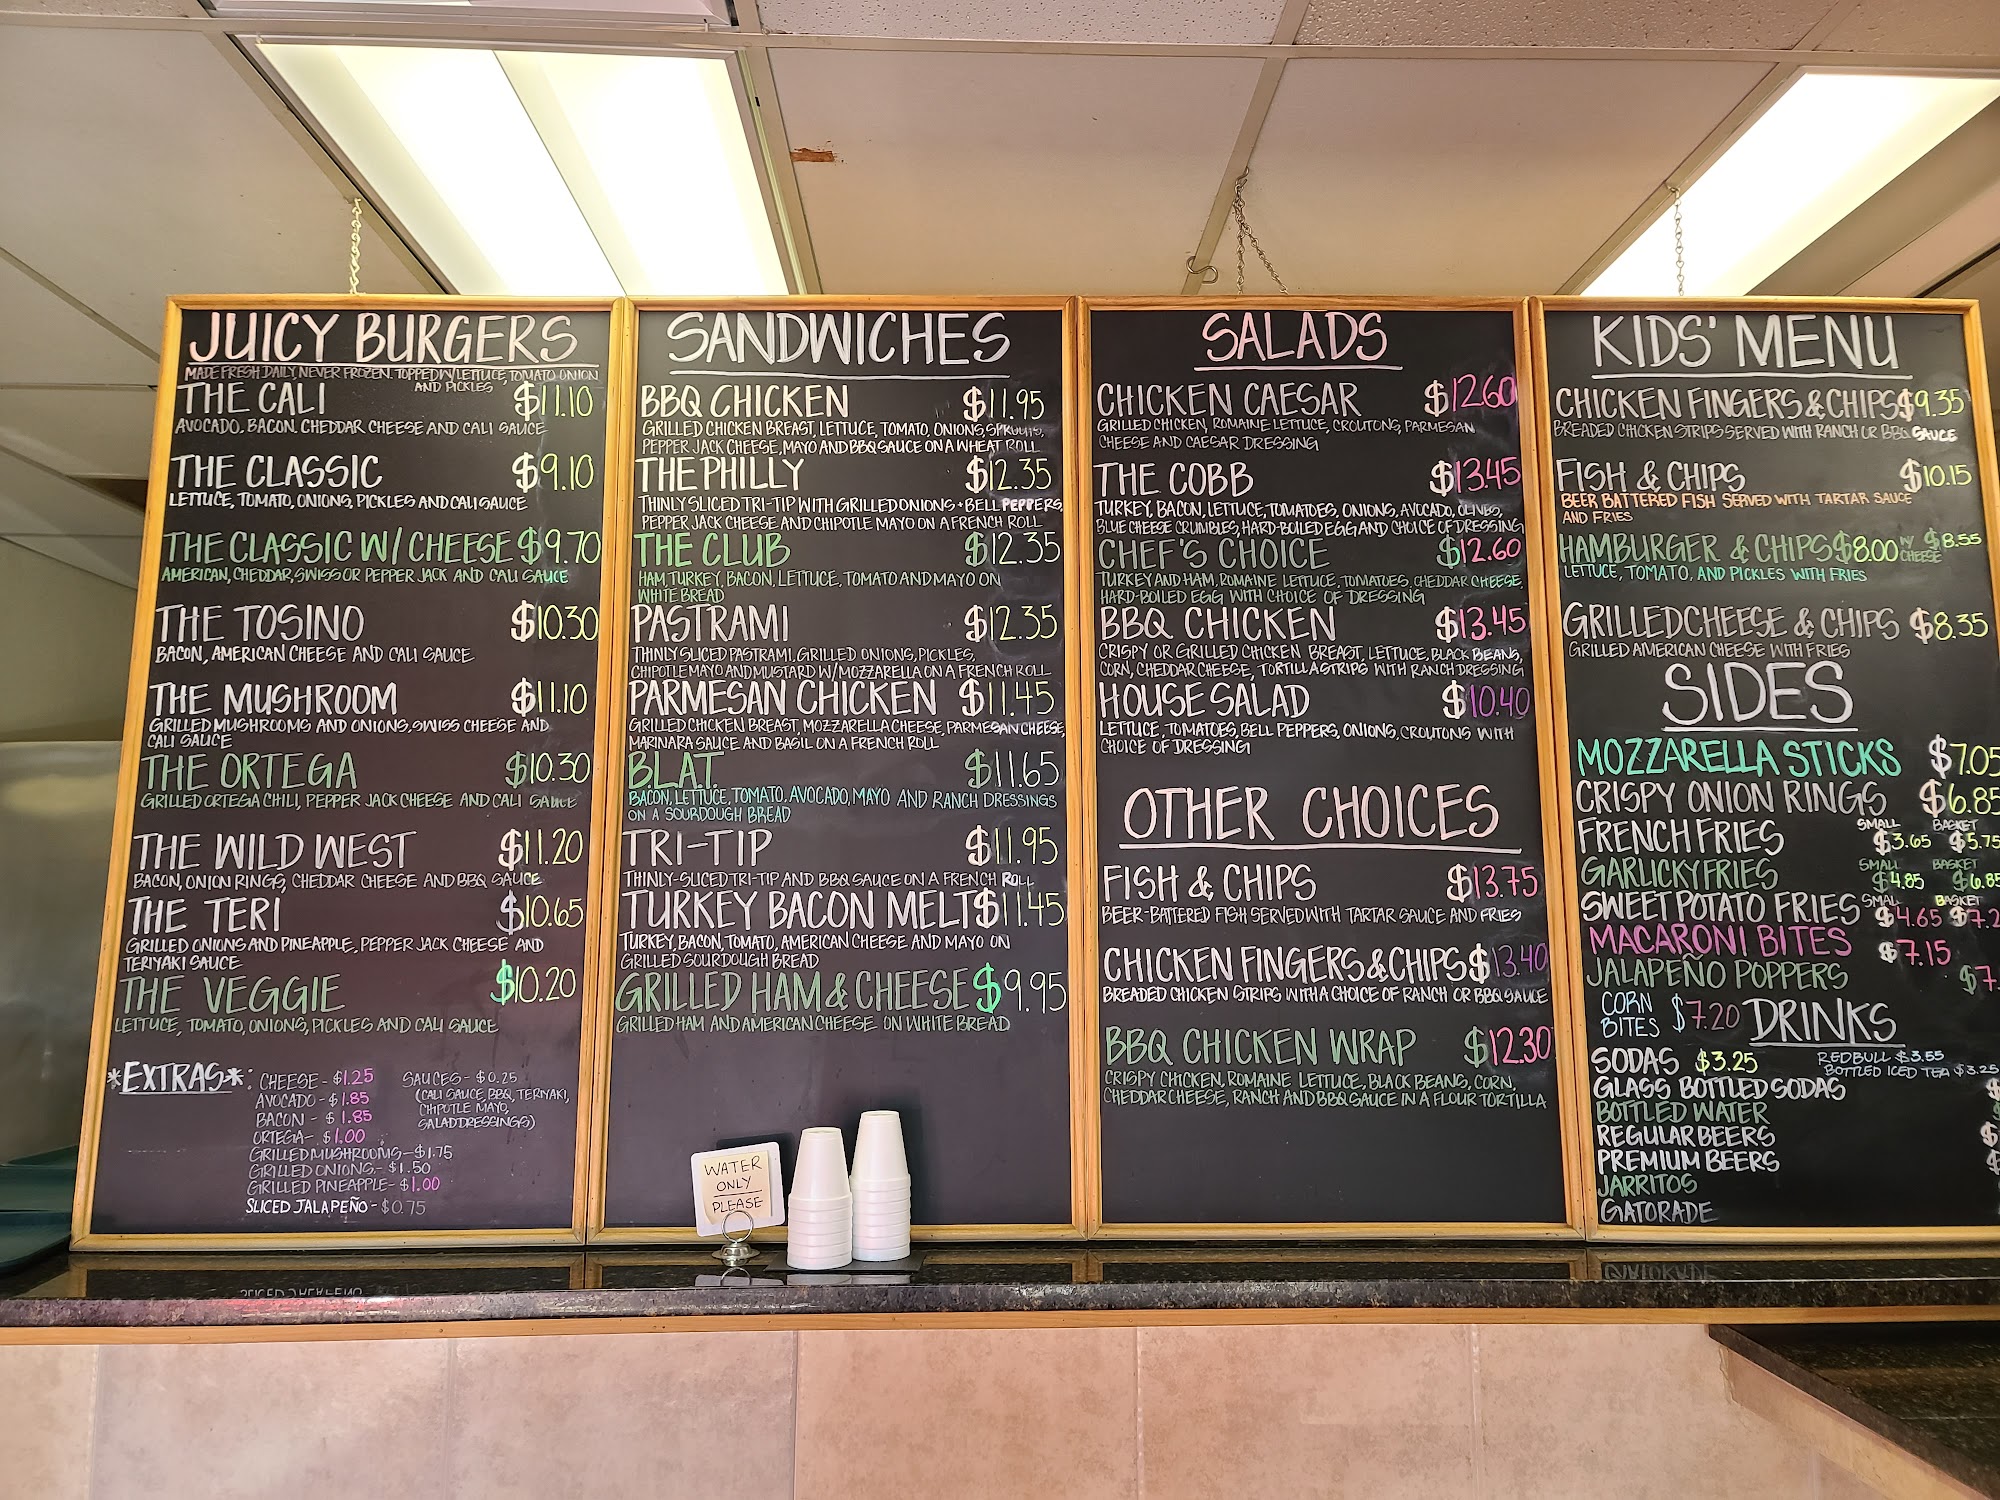 JUICY BURGERS
MADE FRESH DAILY, NEVER FROZEN. TOPPED W/ LETTUCE, TOMATO, ONION
AND PICKLES
THE CALI $11.10
AVOCADO, BACON, CHEDDAR CHEESE AND CALI SAUCE
THE CLASSIC $9.10
LETTUCE, TOMATO, ONIONS, PICKLES AND CALI SAUCE
THE CLASSIC W/ CHEESE $9.70
AMERICAN, CHEDDAR, SWISS OR PEPPER JACK AND CALI SAUCE
THE TOSINO $10.30
BACON, AMERICAN CHEESE AND CALI SAUCE
THE MUSHROOM $11.10
GRILLED MUSHROOMS AND ONIONS, SWISS CHEESE AND
CALI SAUCE
THE ORTEGA $10.30
GRILLED ORTEGA CHILI, PEPPER JACK CHEESE AND CALI SAUCE
THE WILD WEST $11.20
BACON, ONION RINGS, CHEDDAR CHEESE AND BBQ SAUCE
THE TERI $10.65
GRILLED ONIONS AND PINEAPPLE, PEPPER JACK CHEESE AND
TERIYAKI SAUCE
THE VEGGIE $10.20
LETTUCE, TOMATO, ONIONS, PICKLES AND CALI SAUCE
*EXTRAS*: CHEESE - $1.25
AVOCADO - $1.85
BACON - $1.85
ORTEGA - $1.00
GRILLED MUSHROOMS - $1.75
GRILLED ONIONS - $1.50
GRILLED PINEAPPLE - $1.00
SLICED JALAPEÑO - $0.75
SAUCES - $0.25
(CALI SAUCE, BBQ, TERIYAKI,
CHIPOTLE MAYO,
SALAD DRESSINGS)
SANDWICHES
BBQ CHICKEN $11.95
GRILLED CHICKEN BREAST, LETTUCE, TOMATO, ONIONS, SPROUTS,
PEPPER JACK CHEESE, MAYO AND BBQ SAUCE ON A WHEAT ROLL
THE PHILLY $12.35
THINLY SLICED TRI-TIP WITH GRILLED ONIONS + BELL PEPPERS,
PEPPER JACK CHEESE AND CHIPOTLE MAYO ON A FRENCH ROLL
THE CLUB $12.35
HAM, TURKEY, BACON, LETTUCE, TOMATO AND MAYO ON
WHITE BREAD
PASTRAMI $12.35
THINLY SLICED PASTRAMI, GRILLED ONIONS, PICKLES,
CHIPOTLE MAYO AND MUSTARD W/ MOZZARELLA ON A FRENCH ROLL
PARMESAN CHICKEN $11.45
GRILLED CHICKEN BREAST, MOZZARELLA CHEESE, PARMESAN CHEESE,
MARINARA SAUCE AND BASIL ON A FRENCH ROLL
B.L.A.T. $11.65
BACON, LETTUCE, TOMATO, AVOCADO, MAYO AND RANCH DRESSINGS
ON A SOURDOUGH BREAD
TRI-TIP $11.95
THINLY-SLICED TRI-TIP AND BBQ SAUCE ON A FRENCH ROLL
TURKEY BACON MELT $11.45
TURKEY, BACON, TOMATO, AMERICAN CHEESE AND MAYO ON
GRILLED SOURDOUGH BREAD
GRILLED HAM & CHEESE $9.95
GRILLED HAM AND AMERICAN CHEESE ON WHITE BREAD
WATER
ONLY
PLEASE
SALADS
CHICKEN CAESAR $12.60
GRILLED CHICKEN, ROMAINE LETTUCE, CROUTONS, PARMESAN
CHEESE AND CAESAR DRESSING
THE COBB $13.45
TURKEY, BACON, LETTUCE, TOMATOES, ONIONS, AVOCADO, OLIVES,
BLUE CHEESE CRUMBLES, HARD-BOILED EGG AND CHOICE OF DRESSING
CHEF'S CHOICE $12.60
TURKEY AND HAM, ROMAINE LETTUCE, TOMATOES, CHEDDAR CHEESE,
HARD-BOILED EGG WITH CHOICE OF DRESSING
BBQ CHICKEN $13.45
CRISPY OR GRILLED CHICKEN BREAST, LETTUCE, BLACK BEANS,
CORN, CHEDDAR CHEESE, TORTILLA STRIPS WITH RANCH DRESSING
HOUSE SALAD $10.40
LETTUCE, TOMATOES, BELL PEPPERS, ONIONS, CROUTONS WITH
CHOICE OF DRESSING
OTHER CHOICES
FISH & CHIPS $13.75
BEER-BATTERED FISH SERVED WITH TARTAR SAUCE AND FRIES
CHICKEN FINGERS & CHIPS $13.40
BREADED CHICKEN STRIPS WITH A CHOICE OF RANCH OR BBQ SAUCE
BBQ CHICKEN WRAP $12.30
CRISPY CHICKEN, ROMAINE LETTUCE, BLACK BEANS, CORN,
CHEDDAR CHEESE, RANCH AND BBQ SAUCE IN A FLOUR TORTILLA
KIDS' MENU
CHICKEN FINGERS & CHIPS $9.35
BREADED CHICKEN STRIPS SERVED WITH RANCH OR BBQ SAUCE
FISH & CHIPS $10.15
BEER BATTERED FISH SERVED WITH TARTAR SAUCE
AND FRIES
HAMBURGER & CHIPS $8.00 W/ CHEESE $8.55
LETTUCE, TOMATO, AND PICKLES WITH FRIES
GRILLED CHEESE & CHIPS $8.35
GRILLED AMERICAN CHEESE WITH FRIES
SIDES
MOZZARELLA STICKS $7.05
CRISPY ONION RINGS $6.85
FRENCH FRIES SMALL $3.65 BASKET $5.75
GARLICKY FRIES SMALL $4.85 BASKET $6.85
SWEET POTATO FRIES SMALL $4.65 BASKET $7.2
MACARONI BITES $7.15
JALAPEÑO POPPERS $7.
CORN BITES $7.20
DRINKS
SODAS $3.25
REDBULL $3.55
BOTTLED ICED TEA $3.25
GLASS BOTTLED SODAS
BOTTLED WATER
REGULAR BEERS
PREMIUM BEERS
JARRITOS
GATORADE